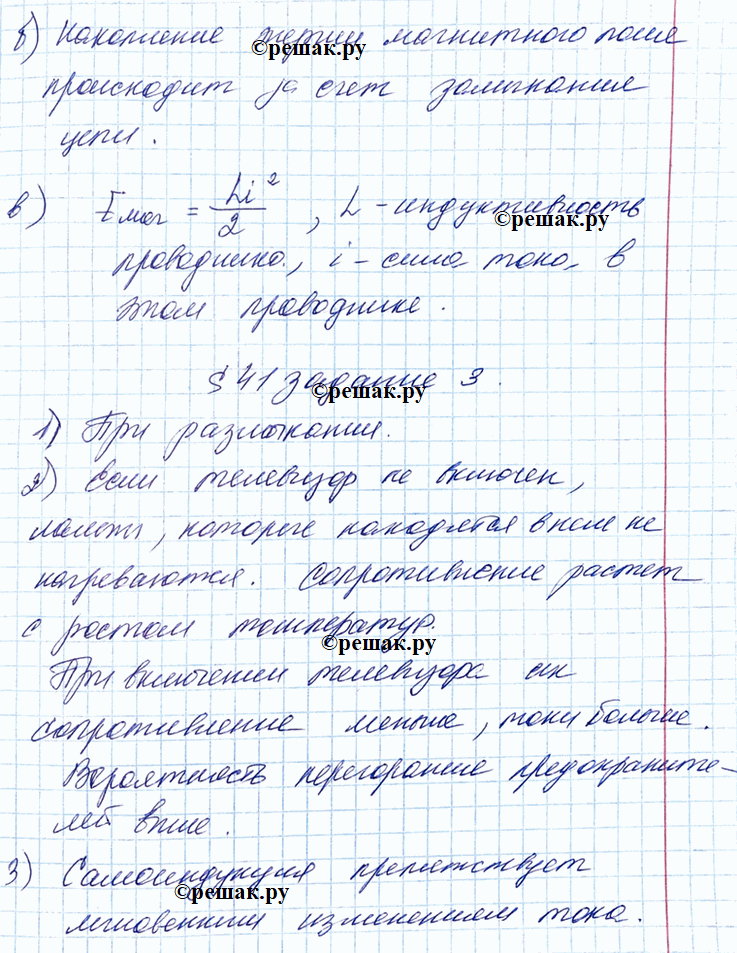 б) Накопление энергии магнитного поля
©решак.ру
происходит за счет замыкания
цепи.
в) Eмаг = Li²/2, L – индуктивность
©решак.ру
проводника, i – сила тока в
этом проводнике.
§ 41 задание 3.
©решак.ру
1) При размыкании.
2) Если телевизор не включен,
лампы, которые находятся в нем не
нагреваются. Сопротивление растет
с ростом температур.
©решак.ру
При включении телевизора их
сопротивление меньше, токи больше.
Вероятность перегорание предохраните-
лей выше.
3) Самоиндукция препятствует
©решак.ру
мгновенным изменением тока.